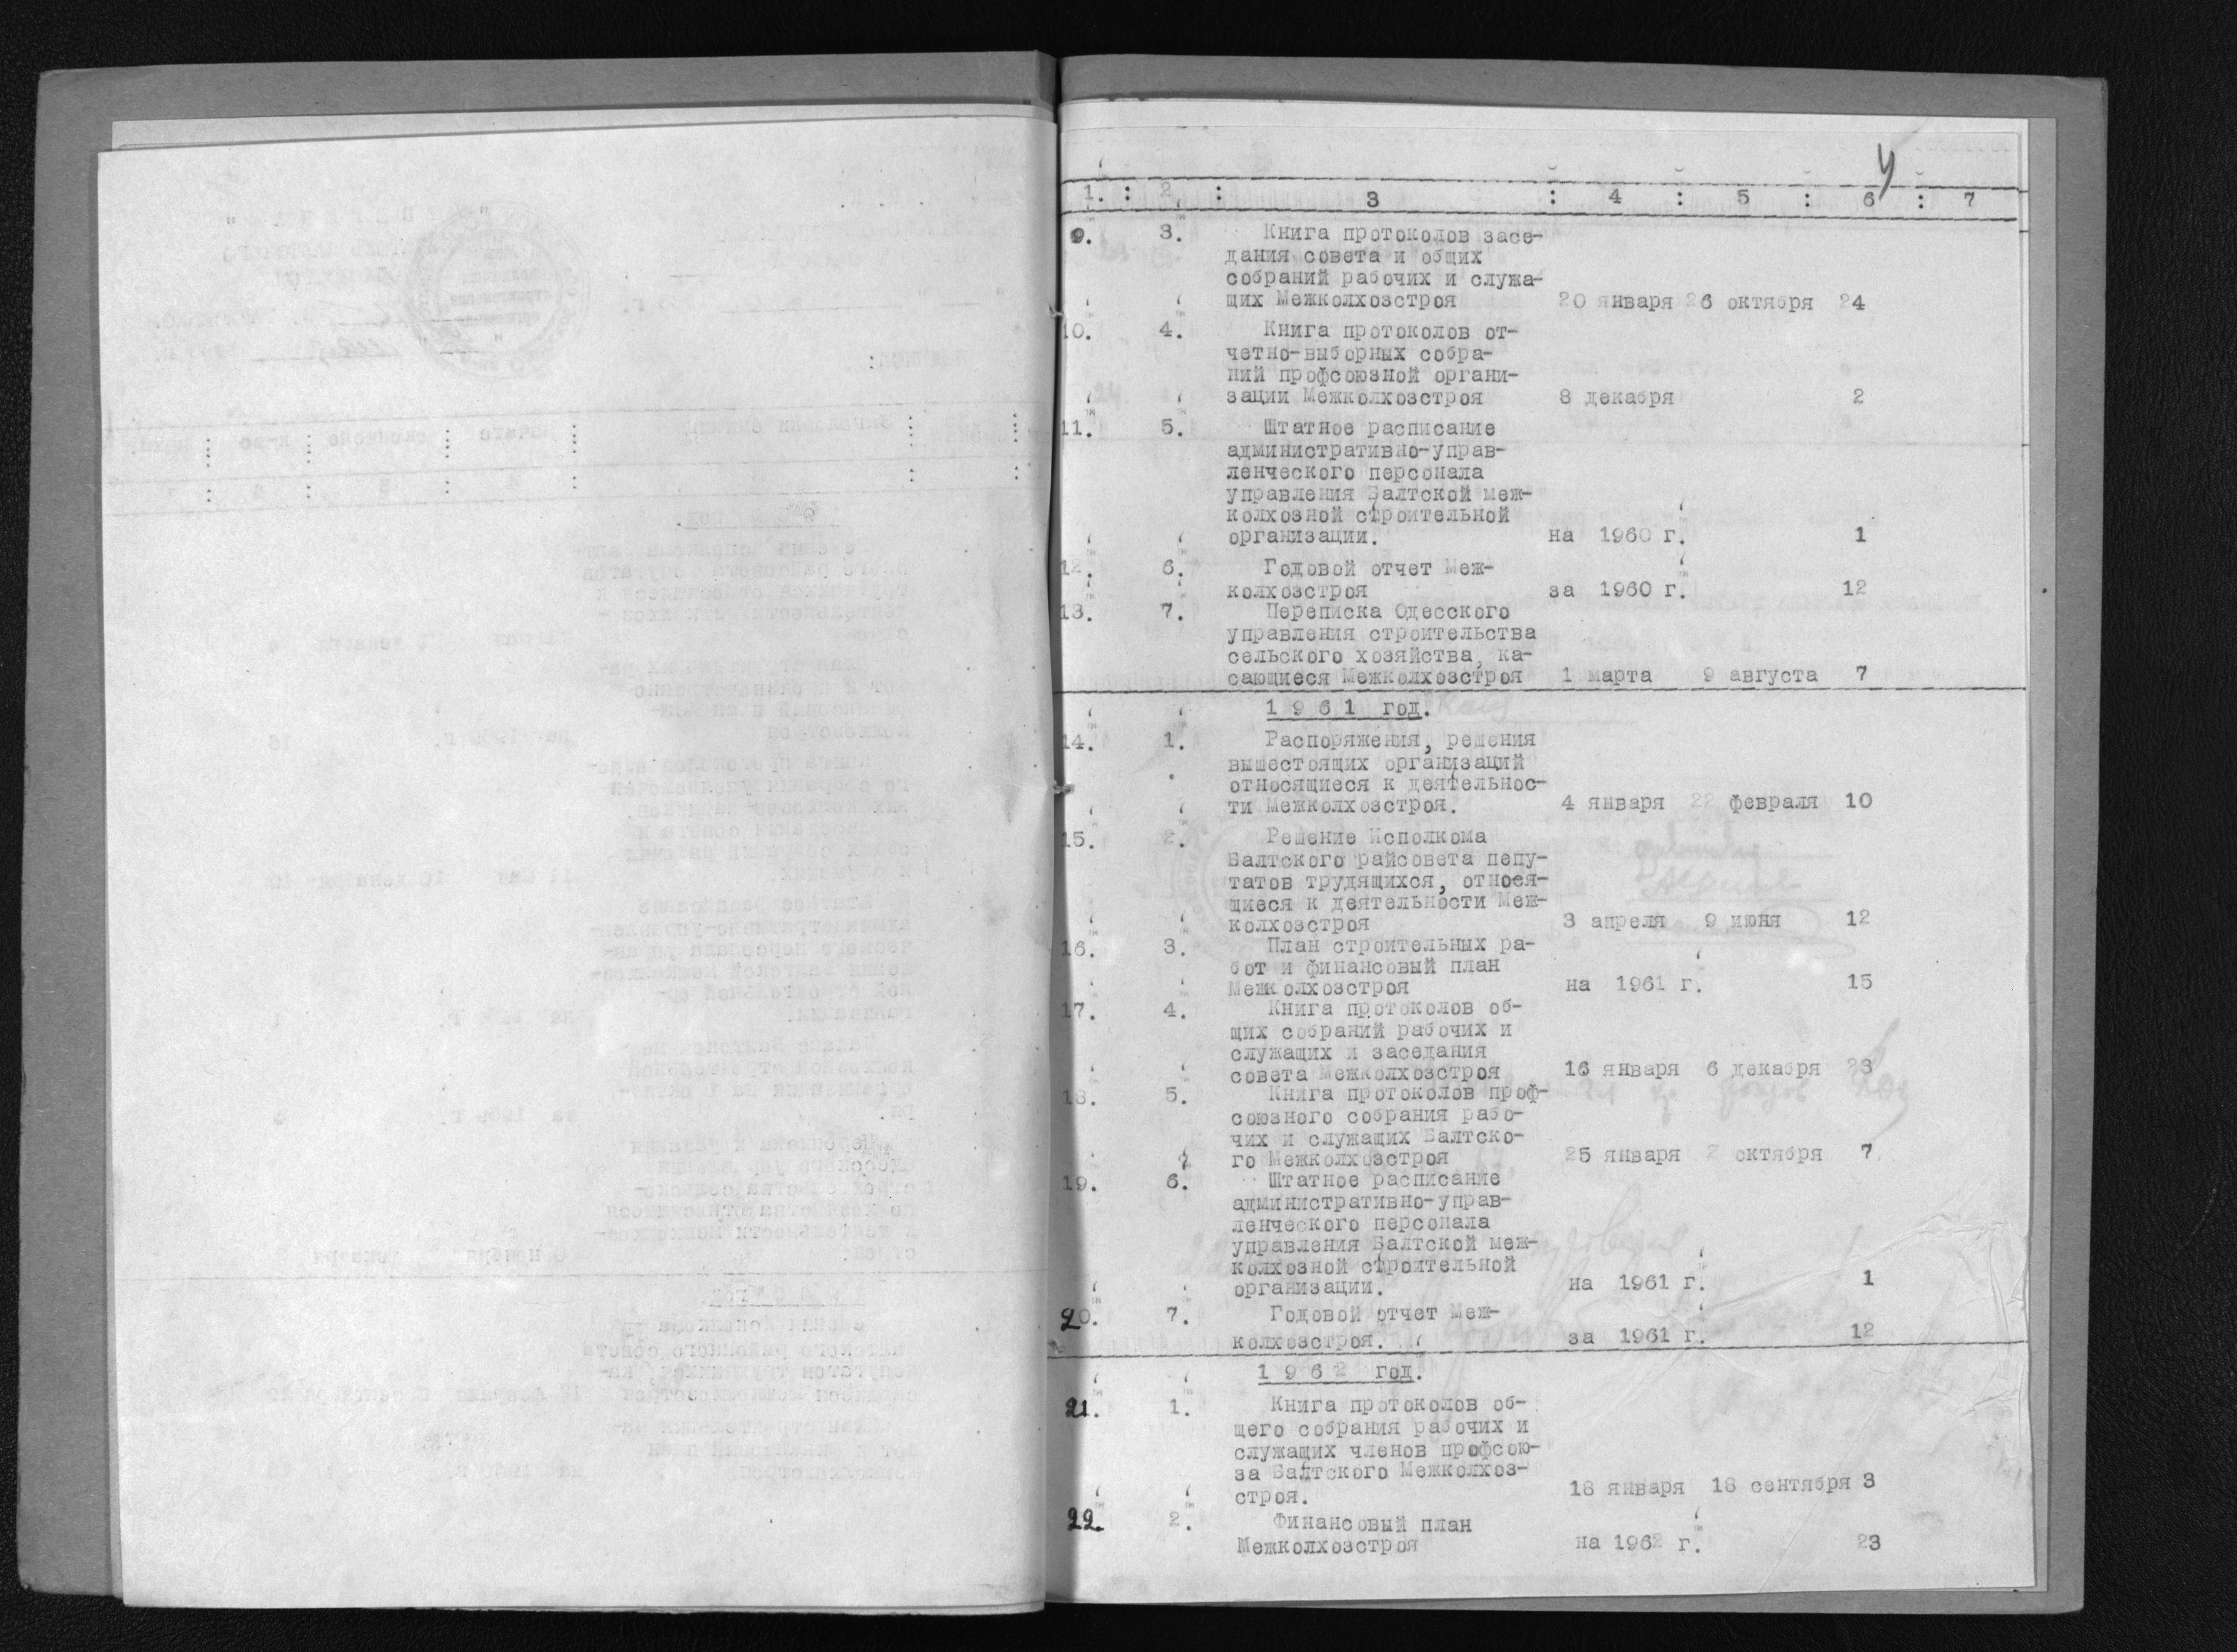 4
1. : 2 : 3 : 4 : 5 : 6 : 7
9. 3. Книга протоколов засе-
дания совета и общих
собраний рабочих и служа-
щих Межколхозстроя 20 января 26 октября 24
10. 4. Книга протоколов от-
четно-выборных собра-
ний профсоюзной органи-
зации Межколхозстроя 8 декабря 2
11. 5. Штатное расписание
административно-управ-
ленческого персонала
управления Балтской меж-
колхозной строительной
организации. на 1960 г. 1
12. 6. Годовой отчет Меж-
колхозстроя за 1960 г. 12
13. 7. Переписка Одесского
управления строительства
сельского хозяйства, ка-
сающиеся Межколхозстроя 1 марта 9 августа 7
1961 год.
14. 1. Распоряжения, решения
вышестоящих организаций
относящиеся к деятельнос-
ти Межколхозстроя. 4 января 22 февраля 10
15. 2. Решение Исполкома
Балтского райсовета пепу-
татов трудящихся, относя-
щиеся к деятельности Меж-
колхозстроя 3 апреля 9 июня 12
16. 3. План строительных ра-
бот и финансовый план
Межколхозстроя на 1961 г. 15
17. 4. Книга протоколов об-
щих собраний рабочих и
служащих и заседания
совета Межколхозстроя 16 января 6 декабря 23
18. 5. Книга протоколов проф-
союзного собрания рабо-
чих и служащих Балтско-
го Межколхозстроя 25 января 2 октября 7
19. 6. Штатное расписание
административно-управ-
ленческого персонала
управления Балтской меж-
колхозной строительной
организации. на 1961 г. 1
20. 7. Годовой отчет Меж-
колхозстроя. за 1961 г. 12
1962 год.
21. 1. Книга протоколов об-
щего собрания рабочих и
служащих членов профсою-
за Балтского Межколхоз-
строя. 18 января 18 сентября 3
22. 2. Финансовый план
Межколхозстроя на 1962 г. 23